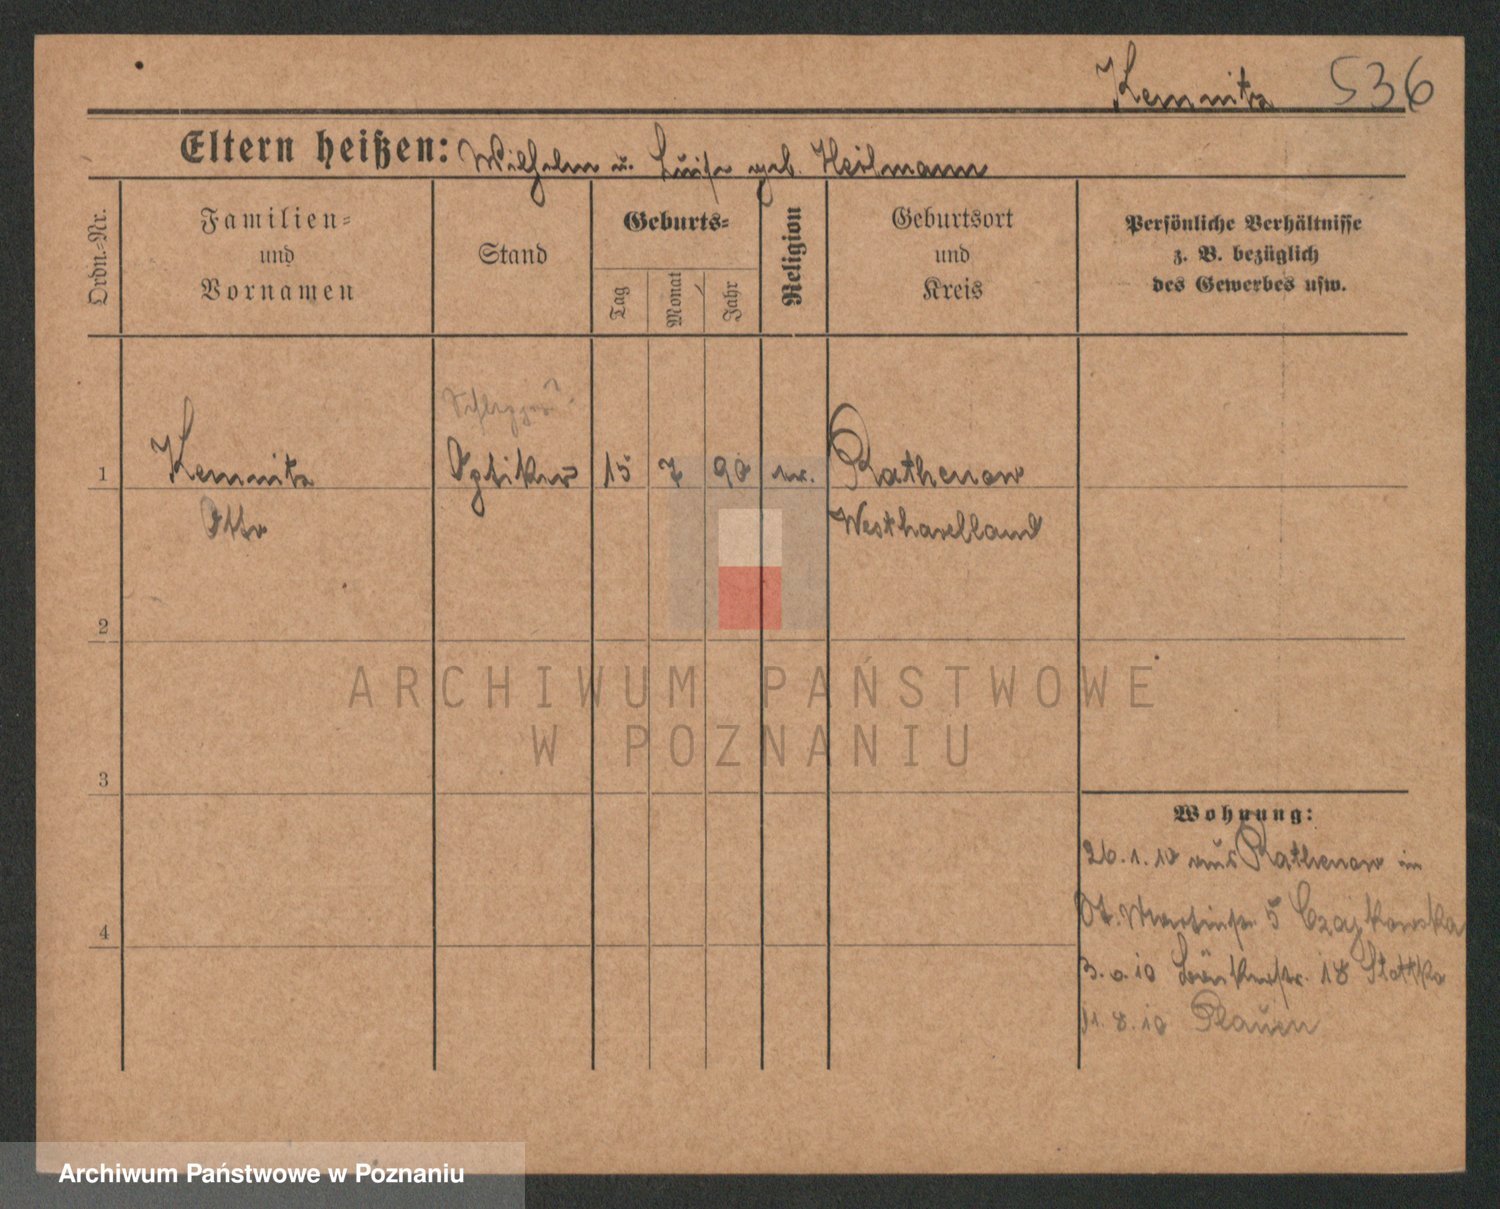 Kemnitz 536
Eltern heißen: Wilhelm u. Luise geb. Heilmann
Ordn.-Nr.
Familien-
und
Vornamen
Stand
Geburts-
Tag
Monat
Jahr
Religion
Geburtsort
und
Kreis
Persönliche Verhältnisse
z. B. bezüglich
des Gewerbes usw.
1 Kemnitz Optiker 15 7 90 ev. Rathenow
Otto Westhavelland
2
3
4
Wohnung:
26.1.10 aus Rathenow in
St. Martinstr. 5 Czajkowska
18
11.8.10 Plauen
ARCHIWUM PAŃSTWOWE
W POZNANIU
Archiwum Państwowe w Poznaniu